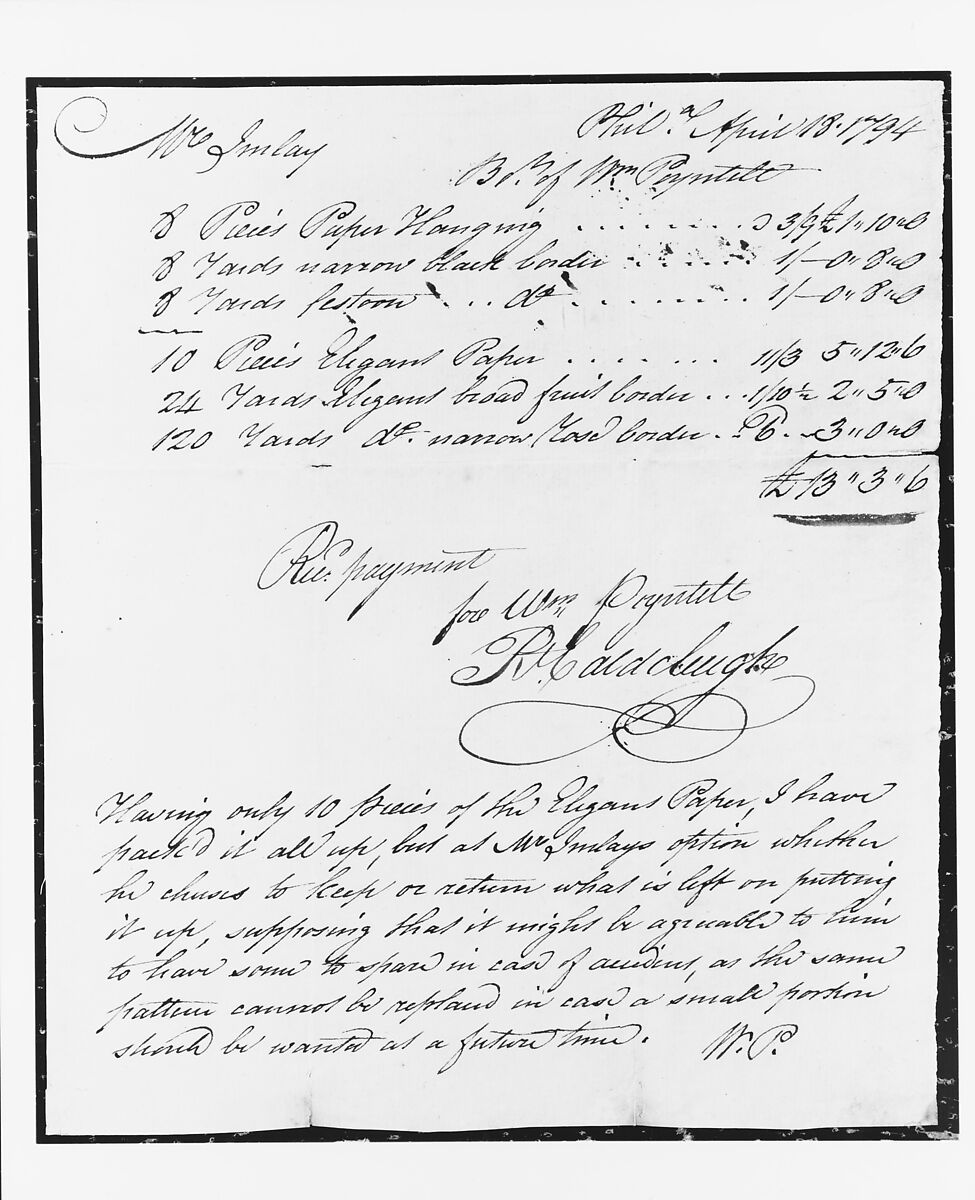 Phila. April 18. 1794
Mr. Imlay
Bot. of Wm Poyntell
8 Pieces Paper Hanging . . . . . . . . 3/9 £ 1 " 10 " 0
8 Yards narrow black border . . . . . . 1/- 0 " 8 " 0
8 Yards festoon . . . do . . . . . . . . 1/- 0 " 8 " 0
10 Pieces Elegant Paper . . . . . . . . 11/3 5 " 12 " 6
24 Yards Elegant broad fruit border . . . 1/10½ 2 " 5 " 0
120 Yards do. narrow Rose border . . 6 . . 3 " 0 " 0
£ 13 " 3 " 6
Rec. payment
for Wm Poyntell
Rt. Caldcleugh
Having only 10 pieces of the Elegant Paper, I have
pack'd it all up, but at Mr Imlays option whether
he chuses to keep or return what is left on putting
it up, supposing that it might be agreable to him
to have some to spare in case of accident, as the same
pattern cannot be replaced in case a small portion
should be wanted at a future time.
W. P.